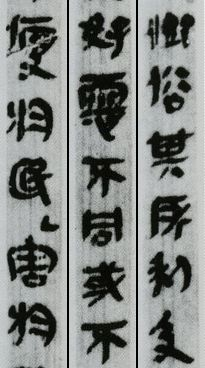 鄉俗其所利及
好惡不同或不
便於民害於